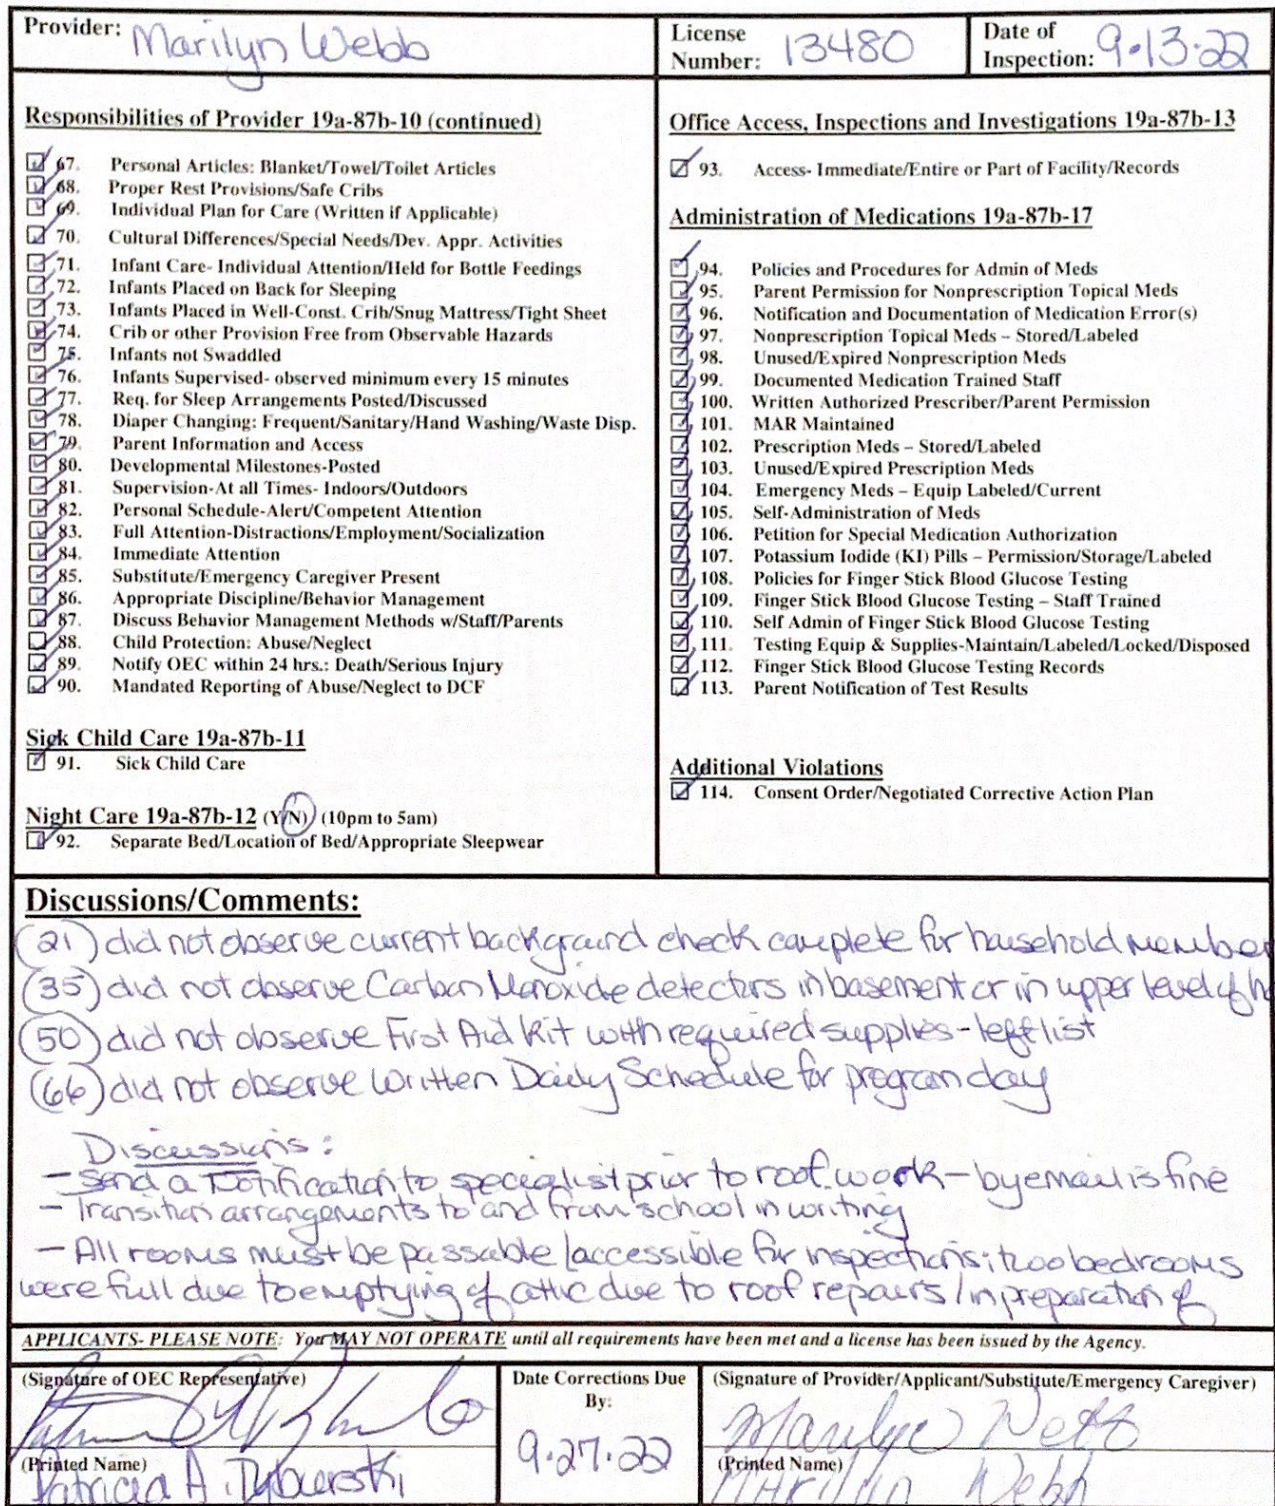 Provider: Marilyn Webb
License Number: 13480
Date of Inspection: 9.13.22
Responsibilities of Provider 19a-87b-10 (continued)
67. Personal Articles: Blanket/Towel/Toilet Articles
68. Proper Rest Provisions/Safe Cribs
69. Individual Plan for Care (Written if Applicable)
70. Cultural Differences/Special Needs/Dev. Appr. Activities
71. Infant Care- Individual Attention/Held for Bottle Feedings
72. Infants Placed on Back for Sleeping
73. Infants Placed in Well-Const. Crib/Snug Mattress/Tight Sheet
74. Crib or other Provision Free from Observable Hazards
75. Infants not Swaddled
76. Infants Supervised- observed minimum every 15 minutes
77. Req. for Sleep Arrangements Posted/Discussed
78. Diaper Changing: Frequent/Sanitary/Hand Washing/Waste Disp.
79. Parent Information and Access
80. Developmental Milestones-Posted
81. Supervision-At all Times- Indoors/Outdoors
82. Personal Schedule-Alert/Competent Attention
83. Full Attention-Distractions/Employment/Socialization
84. Immediate Attention
85. Substitute/Emergency Caregiver Present
86. Appropriate Discipline/Behavior Management
87. Discuss Behavior Management Methods w/Staff/Parents
88. Child Protection: Abuse/Neglect
89. Notify OEC within 24 hrs.: Death/Serious Injury
90. Mandated Reporting of Abuse/Neglect to DCF
Sick Child Care 19a-87b-11
91. Sick Child Care
Night Care 19a-87b-12 (Y/N) (10pm to 5am)
92. Separate Bed/Location of Bed/Appropriate Sleepwear
Office Access, Inspections and Investigations 19a-87b-13
93. Access- Immediate/Entire or Part of Facility/Records
Administration of Medications 19a-87b-17
94. Policies and Procedures for Admin of Meds
95. Parent Permission for Nonprescription Topical Meds
96. Notification and Documentation of Medication Error(s)
97. Nonprescription Topical Meds – Stored/Labeled
98. Unused/Expired Nonprescription Meds
99. Documented Medication Trained Staff
100. Written Authorized Prescriber/Parent Permission
101. MAR Maintained
102. Prescription Meds – Stored/Labeled
103. Unused/Expired Prescription Meds
104. Emergency Meds – Equip Labeled/Current
105. Self-Administration of Meds
106. Petition for Special Medication Authorization
107. Potassium Iodide (KI) Pills – Permission/Storage/Labeled
108. Policies for Finger Stick Blood Glucose Testing
109. Finger Stick Blood Glucose Testing – Staff Trained
110. Self Admin of Finger Stick Blood Glucose Testing
111. Testing Equip & Supplies-Maintain/Labeled/Locked/Disposed
112. Finger Stick Blood Glucose Testing Records
113. Parent Notification of Test Results
Additional Violations
114. Consent Order/Negotiated Corrective Action Plan
Discussions/Comments:
(21) did not observe current background check complete for household member
(35) did not observe Carbon Monoxide detectors in basement or in upper level of
(50) did not observe First Aid Kit with required supplies - left list
(66) did not observe Written Daily Schedule for program day
Discussions:
- Send a Notification to specialist prior to roof work - by email is fine
- Transition arrangements to and from school in writing
- All rooms must be passable/accessible for inspections; two bedrooms
were full due to emptying of attic due to roof repairs/in preparation of
APPLICANTS- PLEASE NOTE: You MAY NOT OPERATE until all requirements have been met and a license has been issued by the Agency.
(Signature of OEC Representative)
(Printed Name)
Patricia A.
Date Corrections Due By:
9.27.22
(Signature of Provider/Applicant/Substitute/Emergency Caregiver)
Marilyn Webb
(Printed Name)
Marilyn Webb